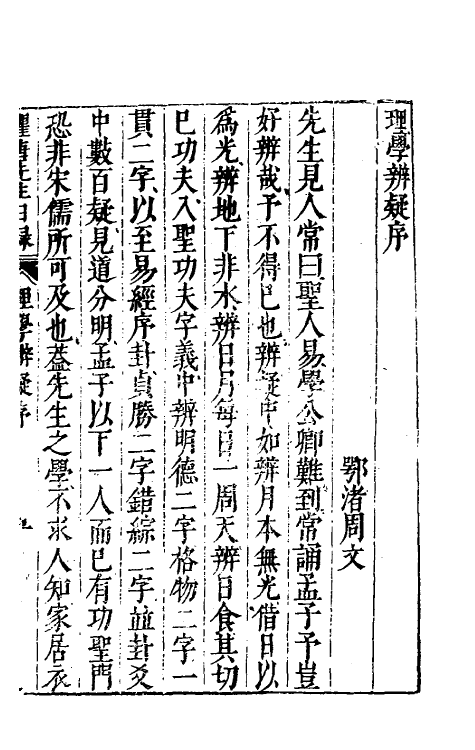 理學辨疑序
鄂渚周文
先生見人常曰聖人易學公卿難到常誦孟子予豈
好辨哉予不得已也辨疑中如辨月本無光借日以
為光辨地下非水辨日月每日一周天辨日食其切
巳功夫入聖功夫字義中辨明德二字格物二字一
貫二字以至易經序卦貞勝二字錯綜二字並卦爻
中數百疑見道分明孟子以下一人而巳有功聖門
恐非宋儒所可及也蓋先生之學不求人知家居衣
瞿唐先生日錄 理學辨疑序